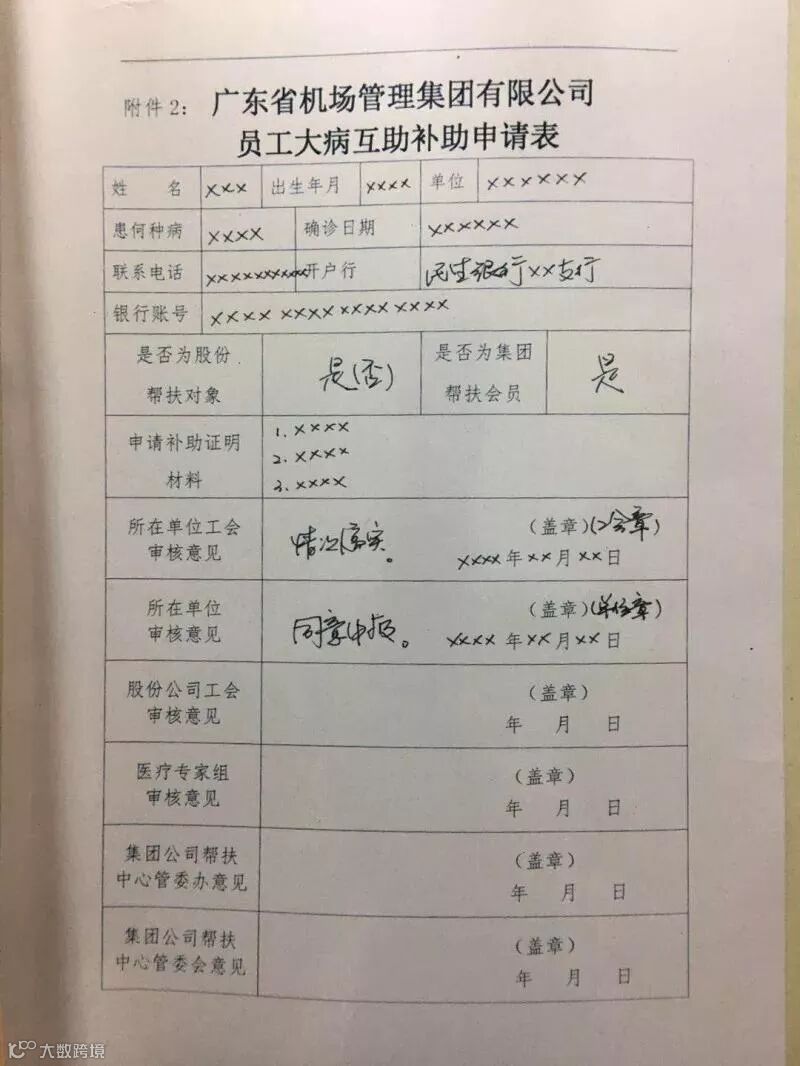 附件2: 广东省机场管理集团有限公司
员工大病互助补助申请表
姓 名 ××× 出生年月 ×××× 单位 ××××××
患何种病 ×××× 确诊日期 ××××××
联系电话 ×××××××××× 开户行 民生银行××支行
银行账号 ×××× ×××× ×××× ××××
是否为股份 是否为集团
是(否) 是
帮扶对象 帮扶会员
1. ××××
申请补助证明
2. ××××
材料
3. ××××
所在单位工会 (盖章)(工会章)
情况属实。
审核意见 ××××年××月××日
所在单位 (盖章)(单位章)
同意申报。
审核意见 ××××年××月××日
股份公司工会 (盖章)
审核意见 年 月 日
医疗专家组 (盖章)
审核意见 年 月 日
集团公司帮扶 (盖章)
中心管委办意见 年 月 日
集团公司帮扶 (盖章)
中心管委会意见 年 月 日
大数跨境